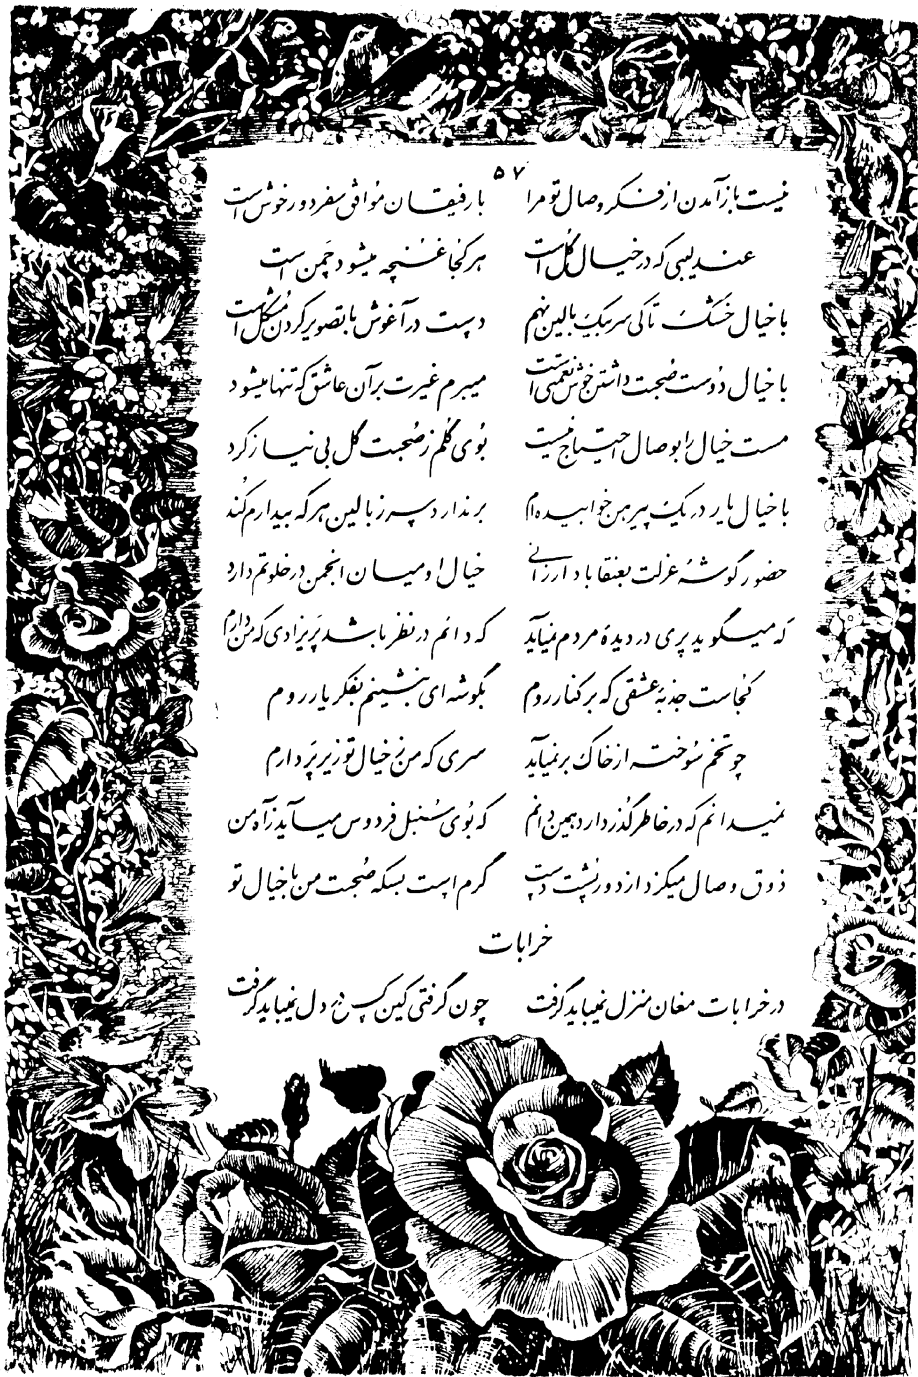 ۵۷
نیست باز آمدن از فکر وصال تو مرا با رفیقان موافق سفر دور خوش است
عندلیبی که در خیال گل است هر کجا غنچه میشود چمن است
با خیال خشک تا کی سر بیک بالین نهم دست در آغوش با تصویر کردن مشکل است
با خیال دوست صحبت داشتن خوش نعمتی است میبرم غیرت بر آن عاشق که تنها میشود
مست خیال را بوصال احتیاج نیست بوی گلم ز صحبت گل بی نیاز کرد
با خیال یار در یک پیرهن خوابیده‌ام برندارد سر ز بالین هر که بیدارم کند
حضور گوشهٔ عزلت بعنقا باد ارزانی خیال او میان انجمن در خلوتم دارد
که میگوید پری در دیدهٔ مردم نمیآید که دائم در نظر باشد پریزادی که من دارم
کجاست جذبهٔ عشقی که بر کنار روم بگوشه‌ای بنشینم بفکر یار روم
چو تخم سوخته از خاک بر نمیآید سری که من ز خیال تو زیر پر دارم
نمیدانم که در خاطر گذر دارد همین دانم که بوی سنبل فردوس میآید ز آه من
ذوق وصال میگزد از دور پشت دست گرم است بسکه صحبت من با خیال تو
خرابات
در خرابات مغان منزل نمیباید گرفت چون گرفتی کین کس در دل نمیباید گرفت